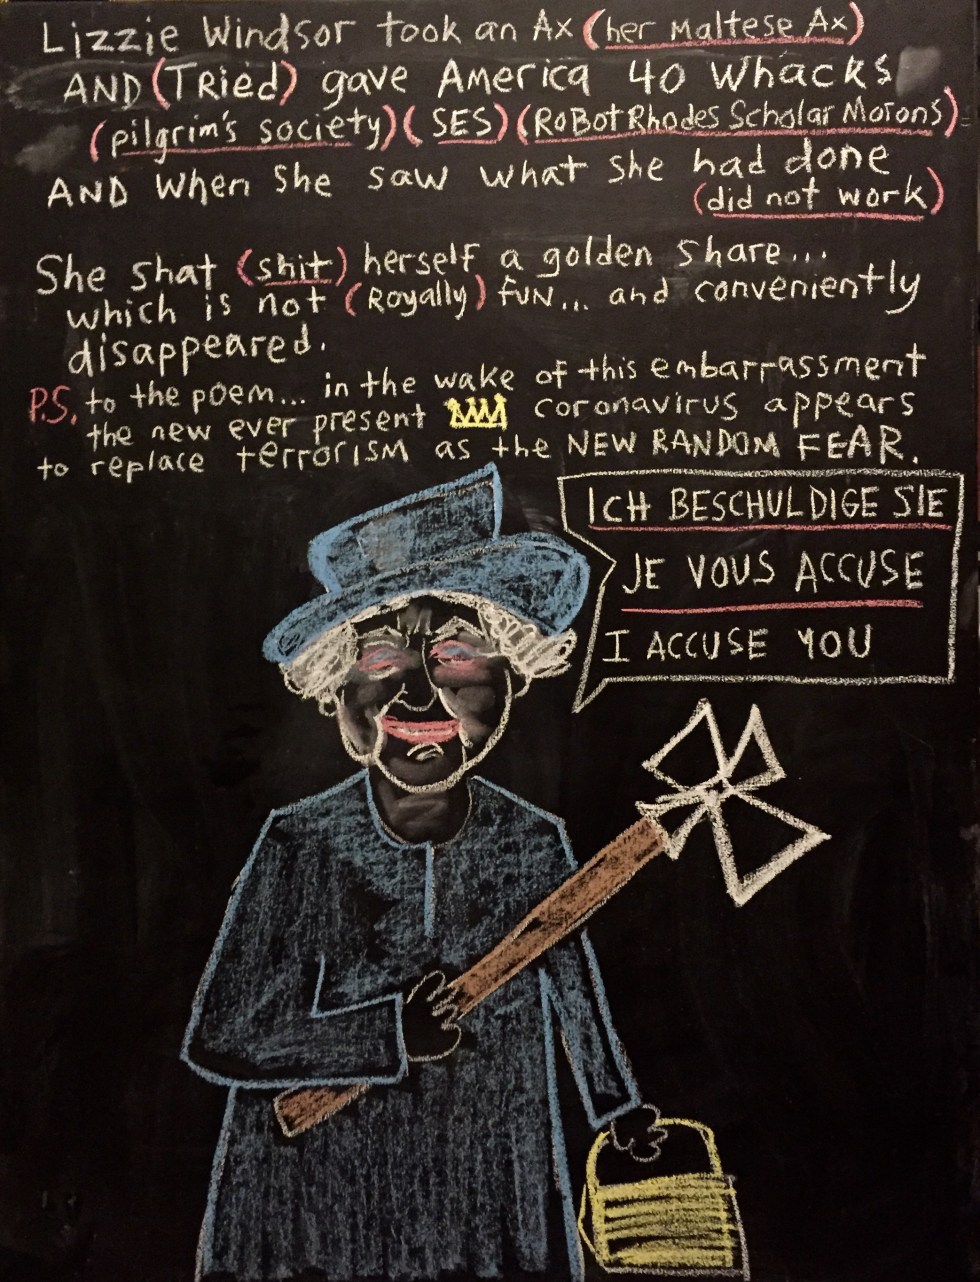 Lizzie Windsor took an Ax (her Maltese Ax)
AND (Tried) gave America 40 Whacks
(pilgrim's society) (SES) (RoBot Rhodes Scholar Morons)
AND When She saw what she had done
(did not work)
She shat (shit) herself a golden share...
which is not (Royally) fun... and conveniently
disappeared.
P.S. to the poem... in the wake of this embarrassment
the new ever present coronavirus appears
to replace terrorism as the NEW RANDOM FEAR.
ICH BESCHULDIGE SIE
JE VOUS ACCUSE
I ACCUSE YOU